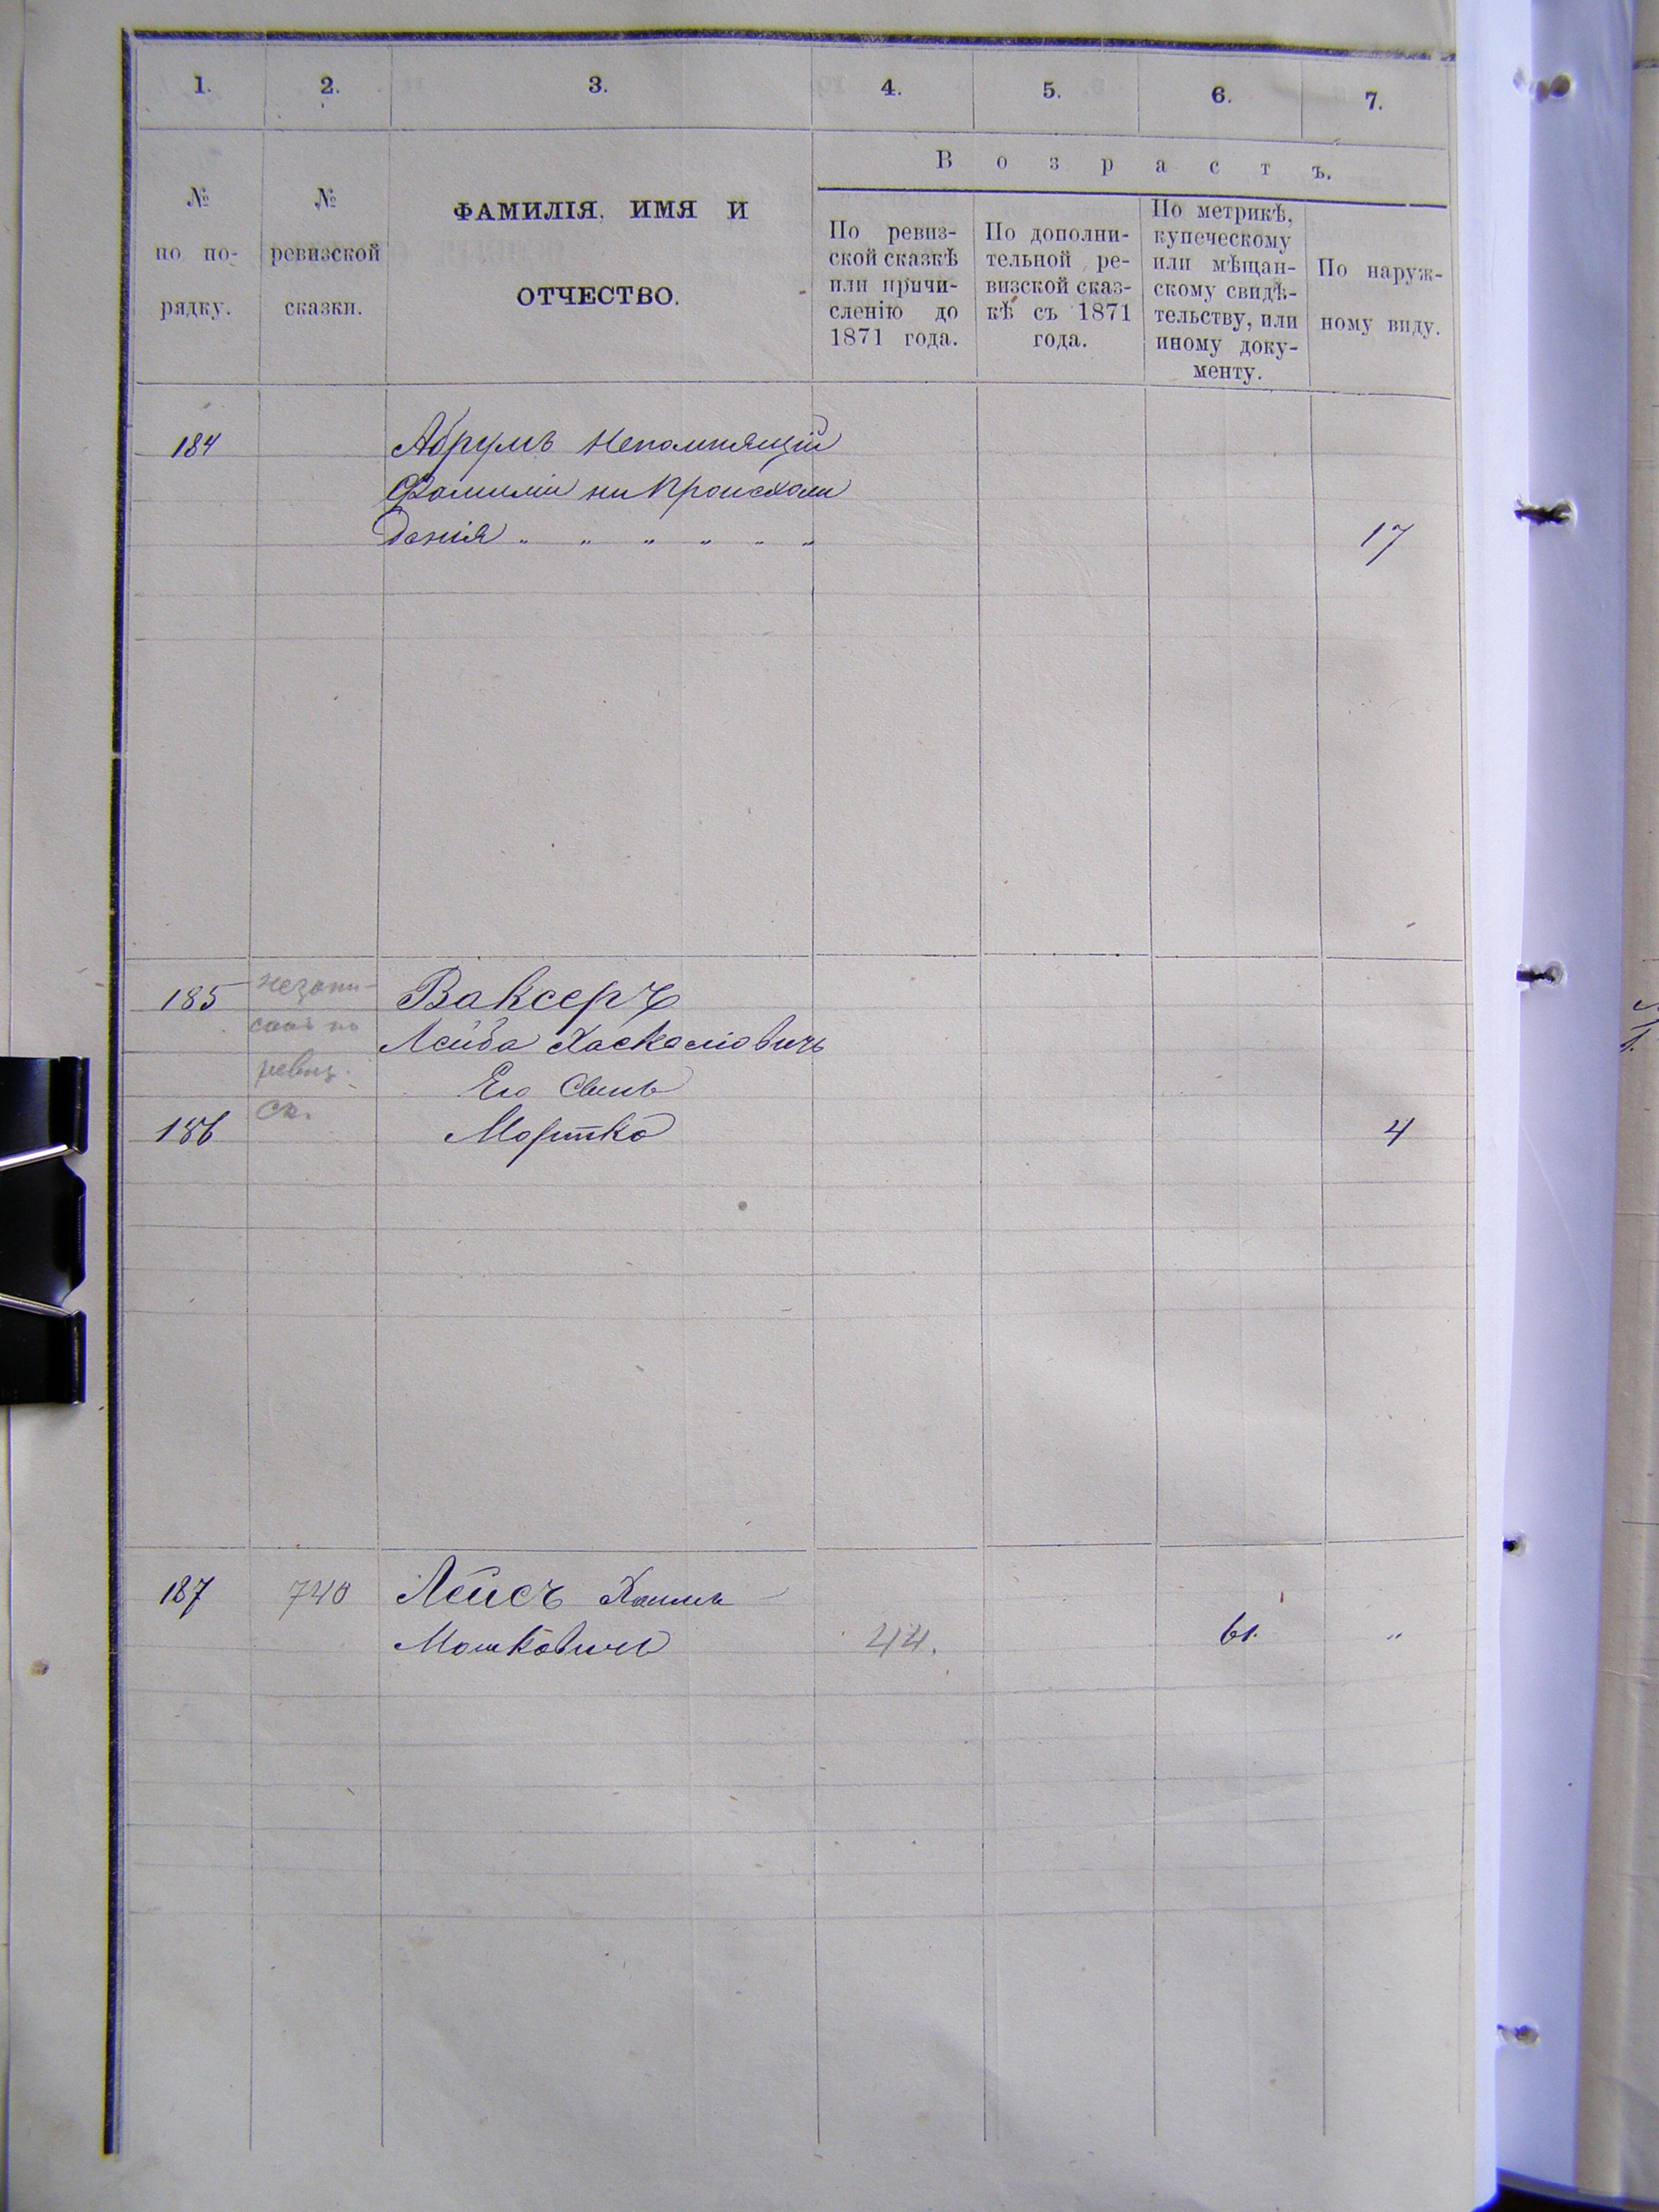 1. 2. 3. 4. 5. 6. 7.
В о з р а с т ъ.
№
по по-
рядку.
№
ревизской
сказки.
ФАМИЛІЯ, ИМЯ И
ОТЧЕСТВО.
По ревиз-
ской сказкѣ
или причи-
сленію до
1871 года.
По дополни-
тельной ре-
визской сказ-
кѣ съ 1871
года.
По метрикѣ,
купеческому
или мѣщан-
скому свидѣ-
тельству, или
иному доку-
менту.
По наруж-
ному виду.
184 Абрумъ Непомнящій
Фамиліи ни Происхож
денія „ „ „ „ „ „ 17
185 незапи- Ваксеръ
санъ по Лейба Хаскеліовичъ
ревиз. Его Сынъ
ск.
186 Мортко 4
187 740 Лейсъ Хаимъ
Мошковичъ 44. 61. „